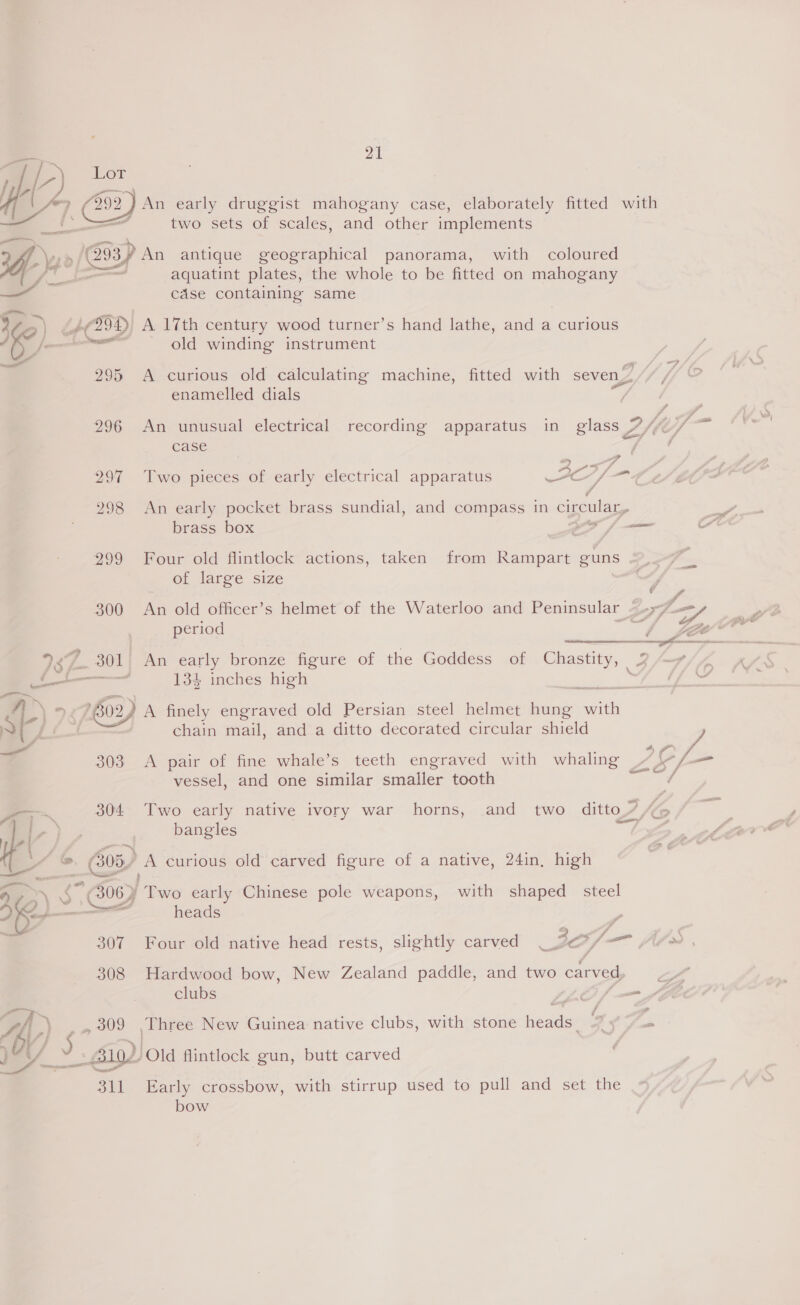 21
Lot
292 An early druggist mahogany case, elaborately fitted with
two sets of scales, and other implements
293 An antique geographical panorama, with coloured
aquatint plates, the whole to be fitted on mahogany
case containing same
294 A 17th century wood turner's hand lathe, and a curious
old winding instrument
295 A curious old calculating machine, fitted with seven
enamelled dials
296 An unusual electrical recording apparatus in glass
case
297 Two pieces of early electrical apparatus
298 An early pocket brass sundial, and compass in circular
brass box
299 Four old flintlock actions, taken from Rampart guns
of large size
300 An old officer's helmet of the Waterloo and Peninsular
period
301 An early bronze figure of the Goddess of Chastity,
13½ inches high
302 A finely engraved old Persian steel helmet hung with
chain mail, and a ditto decorated circular shield
303 A pair of fine whale's teeth engraved with whaling
vessel, and one similar smaller tooth
304 Two early native ivory war horns, and two ditto
bangles
305 A curious old carved figure of a native, 24in. high
306 Two early Chinese pole weapons, with shaped steel
heads
307 Four old native head rests, slightly carved
308 Hardwood bow, New Zealand paddle, and two carved
clubs
309 Three New Guinea native clubs, with stone heads
310 Old flintlock gun, butt carved
311 Early crossbow, with stirrup used to pull and set the
bow